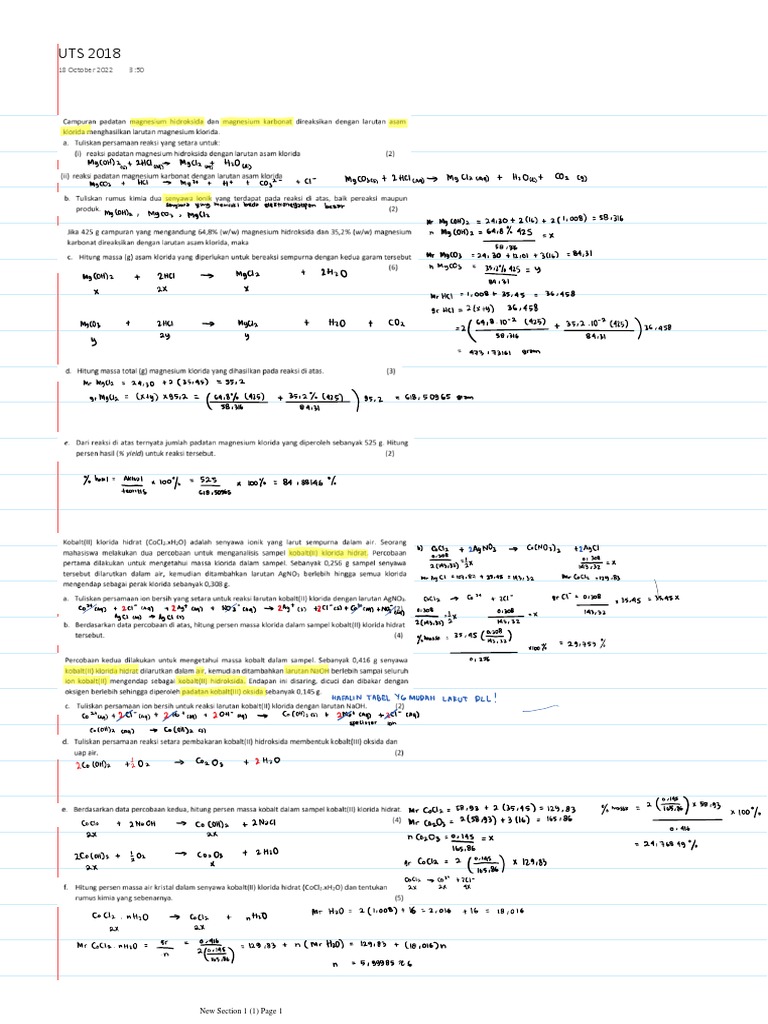 UTS 2018
18 October 2022 8:50
Campuran padatan magnesium hidroksida dan magnesium karbonat direaksikan dengan larutan asam
klorida menghasilkan larutan magnesium klorida.
a. Tuliskan persamaan reaksi yang setara untuk:
(i) reaksi padatan magnesium hidroksida dengan larutan asam klorida (2)
Mg(OH)2(s) + 2HCl(aq) → MgCl2(aq) + H2O(l)
(ii) reaksi padatan magnesium karbonat dengan larutan asam klorida
MgCO3 + HCl → Mg2+ + H+ + CO3 2- + Cl-
MgCO3(s) + 2HCl(aq) → MgCl2(aq) + H2O(l) + CO2(g)
b. Tuliskan rumus kimia dua senyawa ionik yang terdapat pada reaksi di atas, baik pereaksi maupun
produk. (2)
Mg(OH)2, MgCO3, MgCl2
Jika 425 g campuran yang mengandung 64,8% (w/w) magnesium hidroksida dan 35,2% (w/w) magnesium
karbonat direaksikan dengan larutan asam klorida, maka
c. Hitung massa (g) asam klorida yang diperlukan untuk bereaksi sempurna dengan kedua garam tersebut
(6)
Mg(OH)2 + 2HCl → MgCl2 + 2H2O
x 2x x
MgCO3 + 2HCl → MgCl2 + H2O + CO2
y 2y y
Mr Mg(OH)2 = 24,30 + 2(16) + 2(1,008) = 58,316
n Mg(OH)2 = 64,8% 425 / 58,316 = x
Mr MgCO3 = 24,30 + 12,01 + 3(16) = 84,31
n MgCO3 = 35,2% 425 / 84,31 = y
Mr HCl = 1,008 + 35,45 = 36,458
gr HCl = 2(x+y) 36,458
= 2(64,8.10-2 (425) / 58,316 + 35,2.10-2 (425) / 84,31) 36,458
= 473,73161 gram
d. Hitung massa total (g) magnesium klorida yang dihasilkan pada reaksi di atas. (3)
Mr MgCl2 = 24,30 + 2(35,45) = 95,2
gr MgCl2 = (x+y) × 95,2 = (64,8% (425) / 58,316 + 35,2% (425) / 84,31) 95,2 = 618,50965 gram
e. Dari reaksi di atas ternyata jumlah padatan magnesium klorida yang diperoleh sebanyak 525 g. Hitung
persen hasil (% yield) untuk reaksi tersebut. (2)
% hasil = aktual / teoritis × 100% = 525 / 618,50965 × 100% = 84,88146 %
Kobalt(II) klorida hidrat (CoCl2.xH2O) adalah senyawa ionik yang larut sempurna dalam air. Seorang
mahasiswa melakukan dua percobaan untuk menganalisis sampel kobalt(II) klorida hidrat. Percobaan
pertama dilakukan untuk mengetahui massa klorida dalam sampel. Sebanyak 0,256 g sampel senyawa
tersebut dilarutkan dalam air, kemudian ditambahkan larutan AgNO3 berlebih hingga semua klorida
mengendap sebagai perak klorida sebanyak 0,308 g.
a. Tuliskan persamaan ion bersih yang setara untuk reaksi larutan kobalt(II) klorida dengan larutan AgNO3.
b. Berdasarkan data percobaan di atas, hitung persen massa klorida dalam sampel kobalt(II) klorida hidrat
tersebut. (4)
b) CoCl2 + 2AgNO3 → Co(NO3)2 + 2AgCl
Mr AgCl = 107,82 + 35,45 = 143,32 Mr CoCl2 = 129,83
CoCl2 → Co2+ + 2Cl-
gr Cl- = 0,308 / 143,32 × 35,45 = 35,45x
% massa = 35,45 (0,308 / 143,32) / 0,256 × 100% = 29,759 %
Percobaan kedua dilakukan untuk mengetahui massa kobalt dalam sampel. Sebanyak 0,416 g senyawa
kobalt(II) klorida hidrat dilarutkan dalam air, kemudian ditambahkan larutan NaOH berlebih sampai seluruh
ion kobalt(II) mengendap sebagai kobalt(II) hidroksida. Endapan ini disaring, dicuci dan dibakar dengan
oksigen berlebih sehingga diperoleh padatan kobalt(III) oksida sebanyak 0,145 g.
HAFALIN TABEL YG MUDAH LARUT DLL!
c. Tuliskan persamaan ion bersih untuk reaksi larutan kobalt(II) klorida dengan larutan NaOH. (2)
d. Tuliskan persamaan reaksi setara pembakaran kobalt(II) hidroksida membentuk kobalt(III) oksida dan
uap air. (2)
2Co(OH)2 + 1/2 O2 → Co2O3 + 2H2O
e. Berdasarkan data percobaan kedua, hitung persen massa kobalt dalam sampel kobalt(II) klorida hidrat.
(4)
CoCl2 + 2NaOH → Co(OH)2 + 2NaCl
2x 2x
2Co(OH)2 + 1/2 O2 → Co2O3 + 2H2O
2x x
Mr CoCl2 = 58,93 + 2(35,45) = 129,83
Mr Co2O3 = 2(58,93) + 3(16) = 165,86
n Co2O3 = 0,145 / 165,86 = x
gr CoCl2 = 2 (0,145 / 165,86) × 129,83
CoCl2 → Co2+ + 2Cl-
% massa = 2 (0,145 / 165,86) × 58,93 / 0,416 × 100%
= 24,76849 %
f. Hitung persen massa air kristal dalam senyawa kobalt(II) klorida hidrat (CoCl2.xH2O) dan tentukan
rumus kimia yang sebenarnya. (5)
CoCl2 . nH2O → CoCl2 + nH2O
2x 2x
Mr H2O = 2(1,008) + 16 = 2,016 + 16 = 18,016
Mr CoCl2.nH2O = gr / n = 0,416 / 2(0,145 / 165,86) = 129,83 + n(Mr H2O) = 129,83 + (18,016)n
n = 5,99985 ≈ 6
New Section 1 (1) Page 1